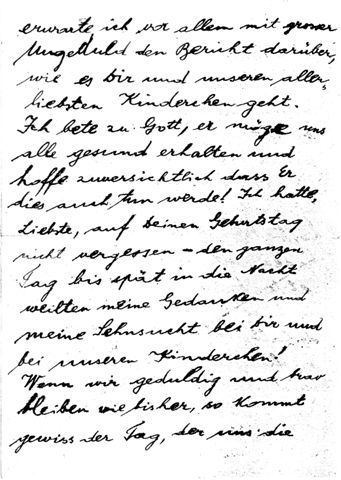 erwarte ich vor allem mit grosser
Ungeduld den Bericht darüber,
wie es Dir und unseren aller-
liebsten Kinderchen geht.
Ich bete zu Gott, er möge uns
alle gesund erhalten und
hoffe zuversichtlich dass Er
dies auch tun werde! Ich hatte,
Liebste, auf Deinen Geburtstag
nicht vergessen – den ganzen
Tag bis spät in die Nacht
weilten meine Gedanken und
meine Sehnsucht bei Dir und
bei unseren Kinderchen!
Wenn wir geduldig und brav
bleiben wie bisher, so kommt
gewiss der Tag, der uns die